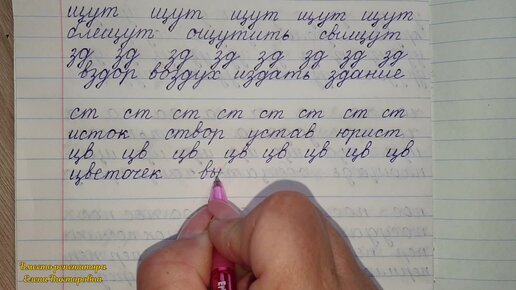 щут щут щут щут щут
блещут ощутить свищут
зд зд зд зд зд зд зд зд
вздор воздух издать здание
ст ст ст ст ст ст ст ст
исток створ устав юрист
цв цв цв цв цв цв цв цв
цветочек вы
Вместо репетатора
Елена Викторовна